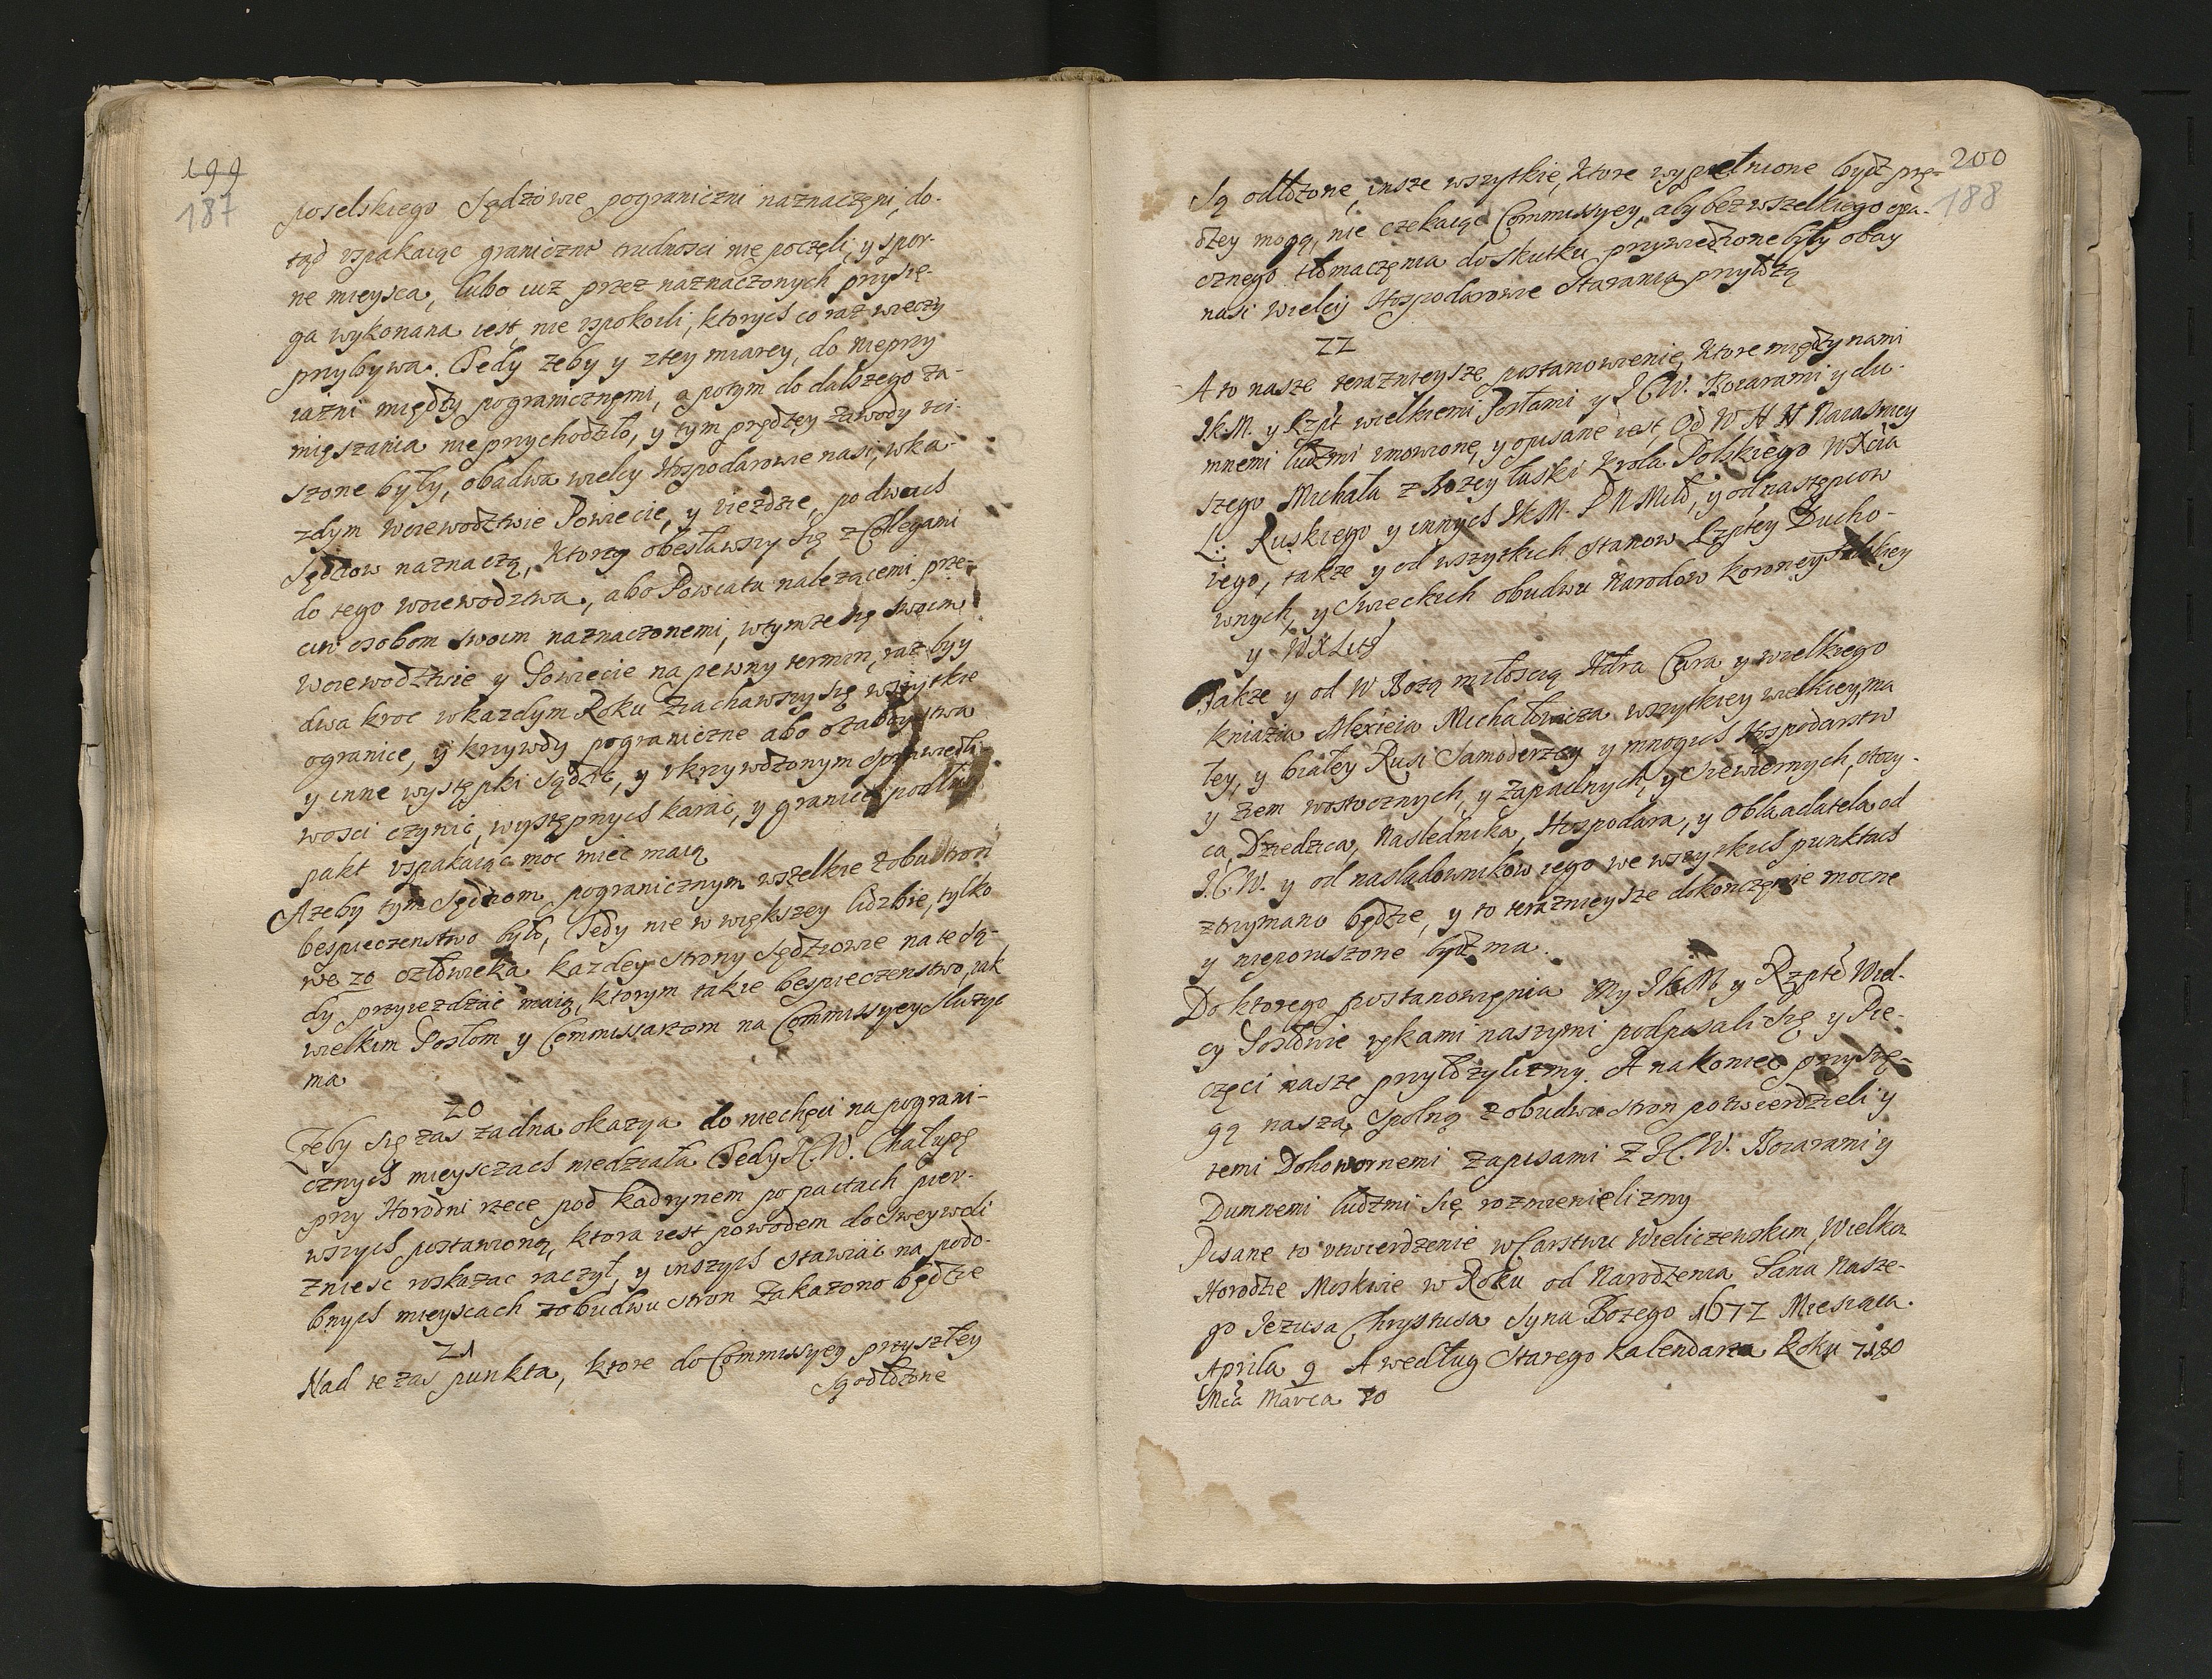 199
187
poselskiego Sędziowie pograniczni naznaczęni, do-
tąd vspakaiąc graniczne trudnosci nię poczęli, y spor-
ne mieysca, lubo iuz przez naznaczonych przysię-
ga wykonana iest, nie vspokoili, ktorych co raz wieczy
przybywa. Tedy zeby y z tey miarey, do nieprzy
iazni między pogranicznęmi, a potym do dalszego za-
mięszania nie przychodzło, y tym prędzey zawody vci-
szone były, obadwa wielcy Hospodarowie nasi, w ka-
zdym woiewodztwie Powiecie, y vieździe, po dwuch
Sędziow naznaczą, ktorzy obesławszy się z Collegami
do tego woiewodztwa, abo Powiatu nalezącemi prze-
ciw osobom swoim naznaczonemi, w tymze się swoim
woiewodztwie y Powiecie na pewny termin, raz by y
dwa kroc w kazdym Roku Ziachawszy się wszytkie
o granice, y krzywdy pograniczne abo o zaboystwa
y inne występki sądzic, y vkrzywdzonym sprawiedli-
wosci czynić, występnych karać, y granice podług
pakt vspakaiąc moc miec maią
A zeby tym Sędziom pogranicznym wszelkie z obu stron
bespieczenstwo było, Tedy nie w większey lidzbie, tylko
we 20 człowieka kazdey strony Sędziowie na te są-
dy przyiezdzać maią, ktorym takie bespieczenstwo, iak
wielkim Posłom y Commissarzom na Commissyey sluzyc
ma
20
Zeby się zas zadna okazya do niechęci na pograni-
cznych mieysczach niedziała Tedy J C. W. Chałupę
przy Horodni rzece pod Kadzynem po pactach pier-
wszych postawioną, ktora iest powodem do sweywoli
zniesc wskazac raczył, y inszych stawiać na podo-
bnych mieyscach z obudwu stron Zakazono będzie
21
Nad te zas punkta, ktore do Commissyey przyszłey
Są odłożone
200
188
Są odłozone, insze wszytkie, ktore wypełnione bydź prę-
dzey mogą, nie czekaiąc Commissyey, aby bez wszelkiego opa-
cznego tłomaczęnia do skutku przywiedzione były obay
nasi wielcy Hospodarowie Starania przyłożą
22
A to nasze teraznieysze postanowienie, ktore między nami
J.K.M. y Rzpt wielkiemi Posłami y J C W. Boiarami y du-
mnemi ludzmi vmowione, y opisane iest, Od W H N Naiasniey
szego Michała z Bozey łaski Krola Polskiego W Xcia
L: Ruskiego y innych JKM. P N Miło, y od następcow
iego, takze y od wszytkich stanow Rzptey Ducho-
wnych, y Swieckich obudwu Narodow Koronnego Polskiey
y W X Litt
Także y od W Bozą miłoscią Hdra Cara y wielkiego
kniazia Alexieia Michałowicza wszytkiey wielkiey, ma
łey, y białey Rusi Samoderzcy y mnogich Hospodarstw
y ziem wostocznych, y zapadnych, y siewiernych, otczy-
ca, Dziedzica, Naslednika, Hospodara, y Obladatela od
J.C.W. y od nasladownikow iego we wszytkich punktach
ztrzymano będzie, y to teraznieysze dokonczęnie mocne
y nieporuszone bydź ma.
Do ktorego postanowięnia My JKM y Rzpte Wiel-
cy Posłowie rękami naszymi podpisali Się y Pie-
częci nasze przyłozylizmy. A nakoniec przysię-
gą naszą spolną z obudwu stron potwierdzieli y
temi Dohowornemi zapisami z J C.W. Boiarami y
Dumnemi ludzmi się rozmienięlizmy
Pisane to vtwierdzenie w Carstwu wieliczewskim Wielkim
Horodzie Moskwie w Roku od Narodzenia Pana Nasze-
go Jezusa Chrystusa Syna Bozego 1672 Miesiąca
Aprila 9 A według Starego kalendarza Roku 7180
Mca Marca 30